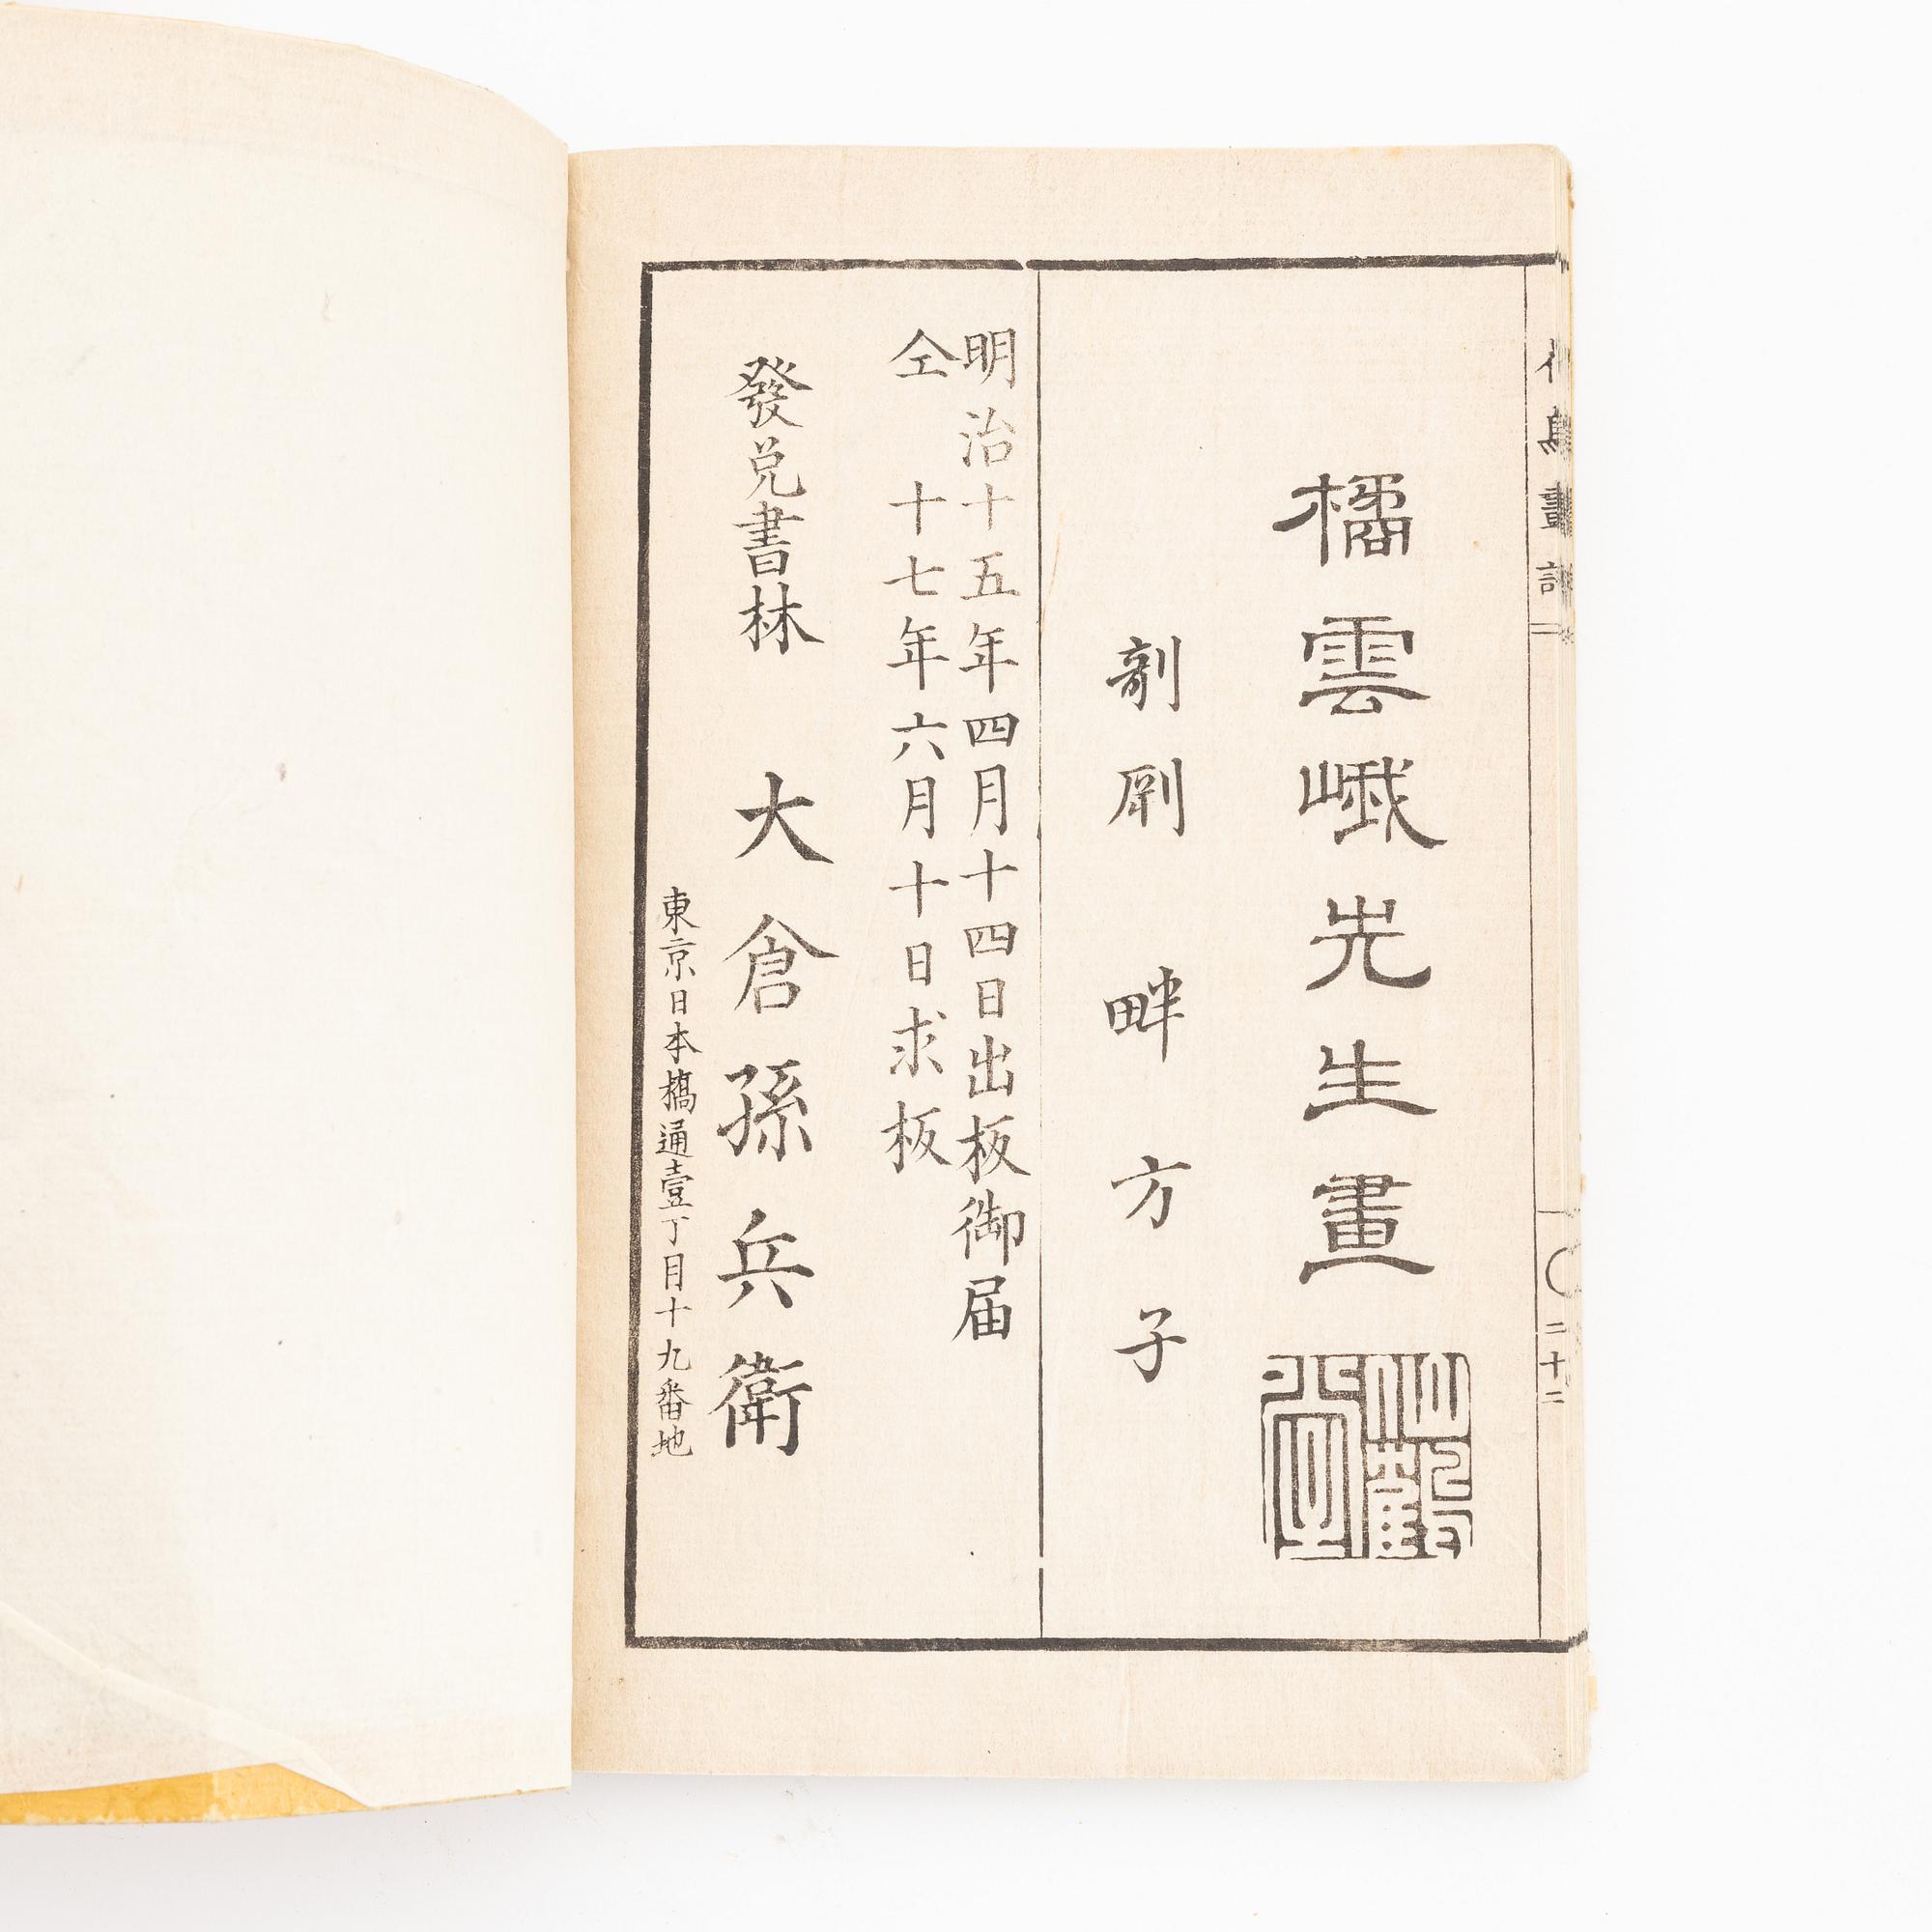 花鳥畫譜
二十二
橘雲峨先生畫
剞劂 畔方子
明治十五年四月十四日出板御届
仝 十七年六月十日求板
發兌書林 大倉孫兵衛
東京日本橋通壹丁目十九番地